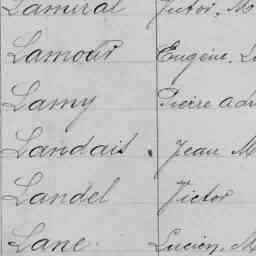 Lamiral Victor, M
Lamour Eugène, L
Lamy Pierre Ad
Landais. Jean M
Landel Victor
Lane Lucien, M